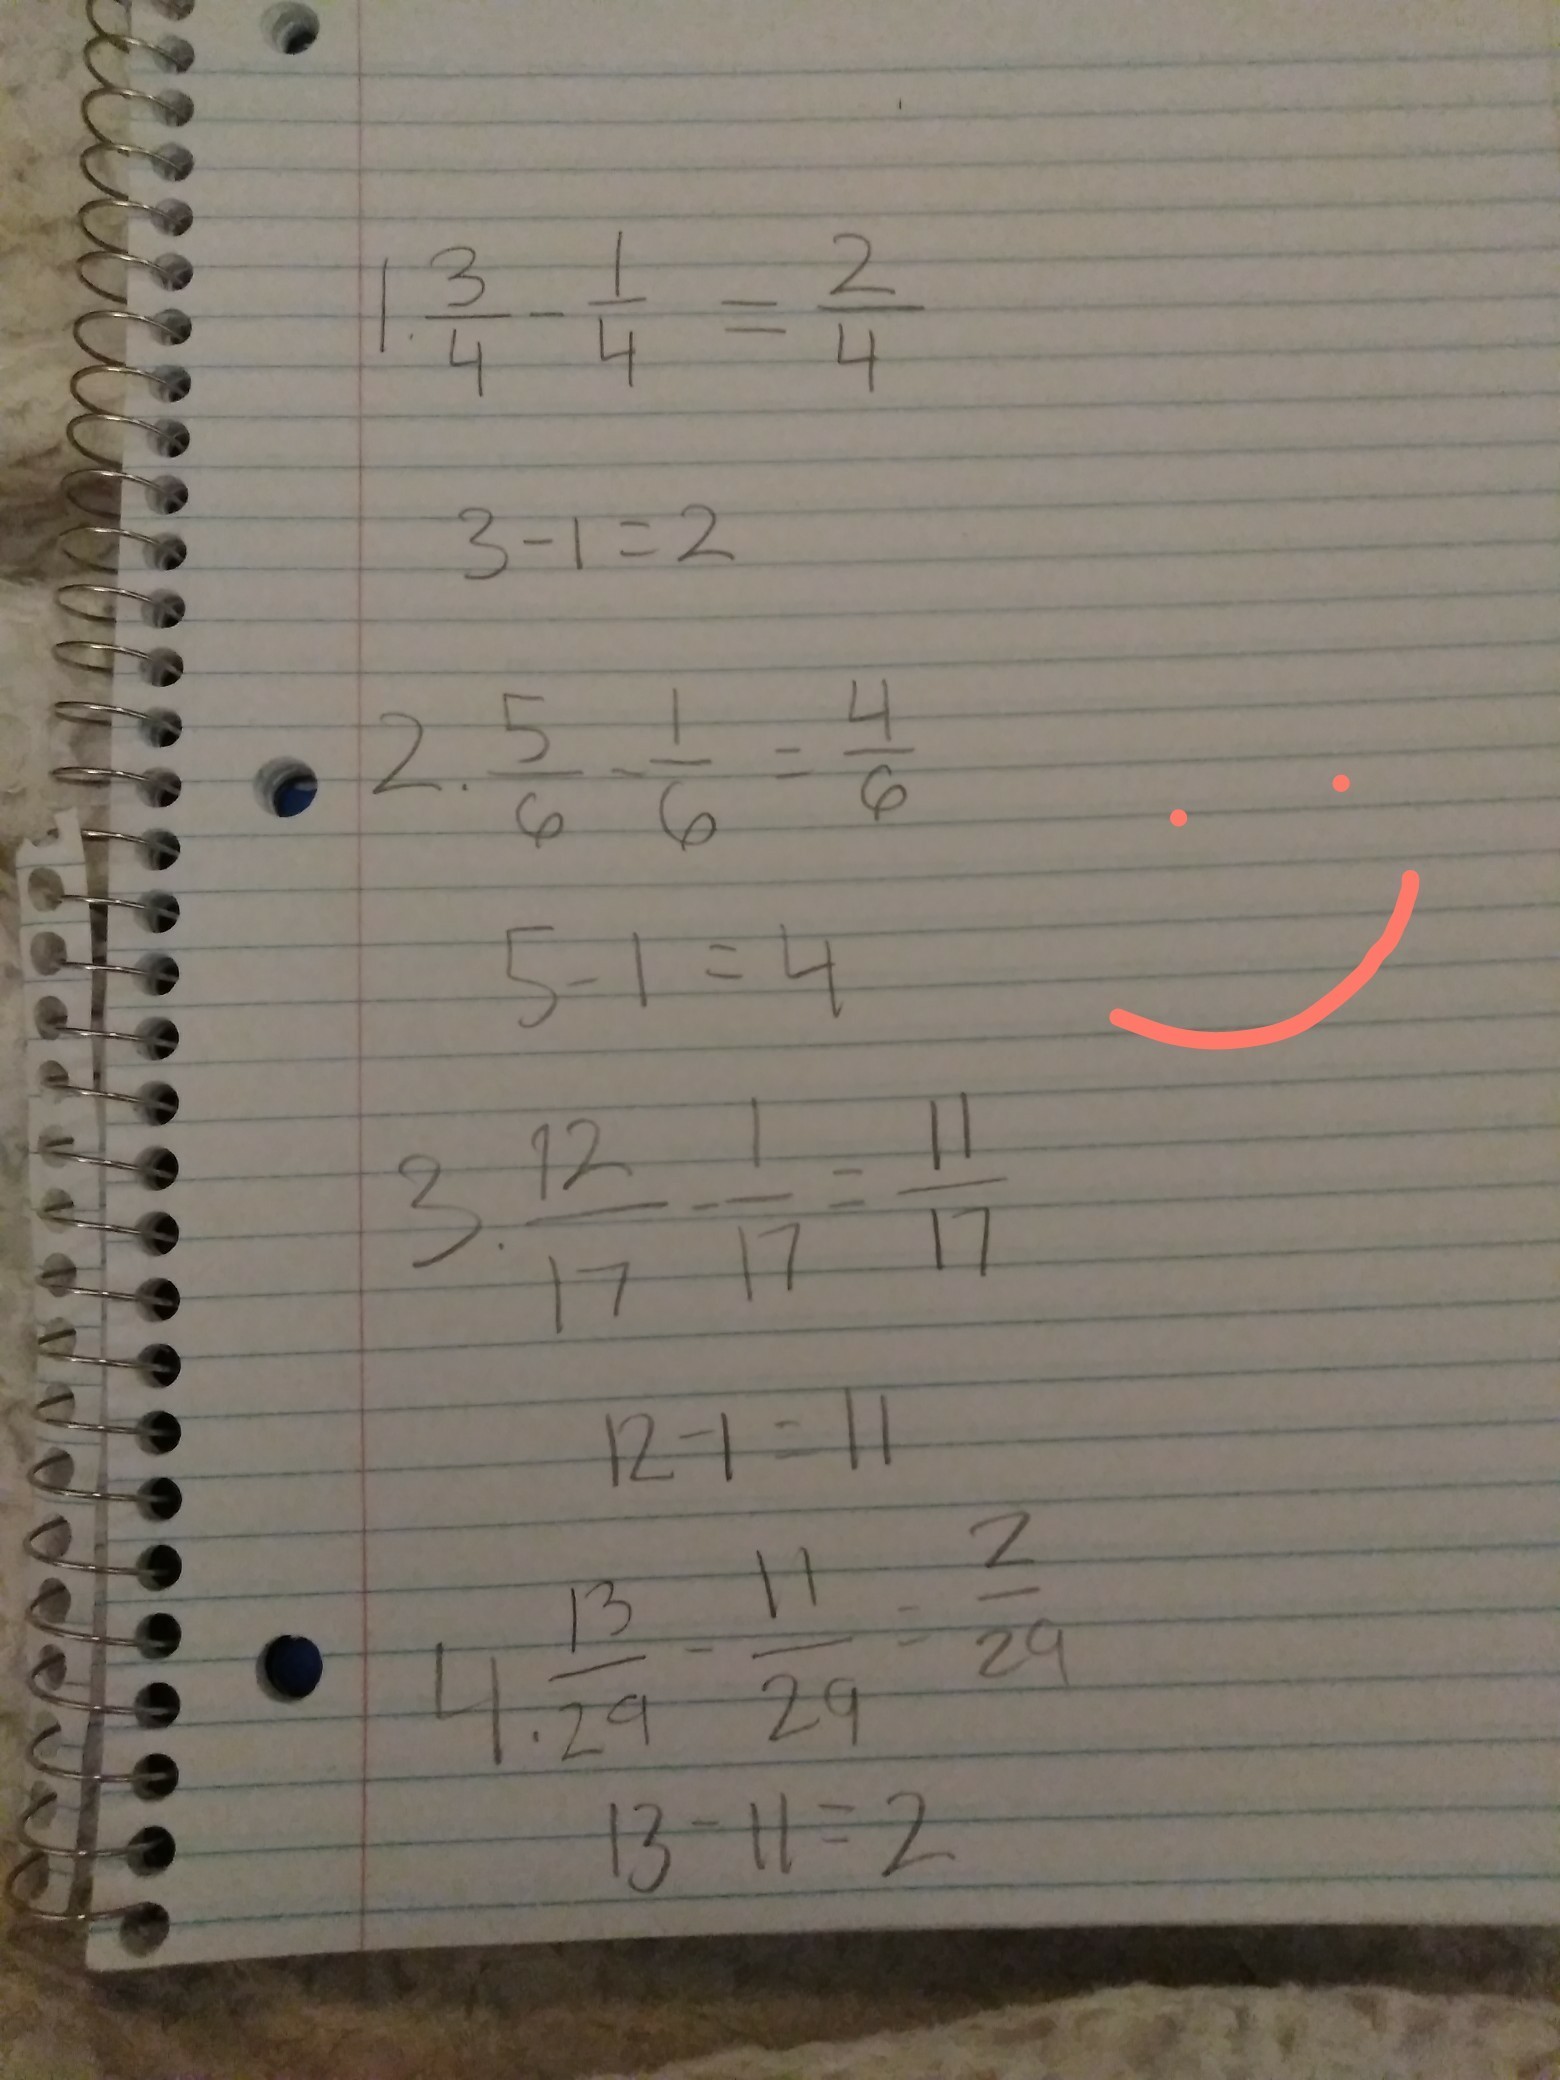 1. 3/4 - 1/4 = 2/4
3-1=2
2. 5/6 - 1/6 = 4/6
5-1=4
3. 12/17 - 1/17 = 11/17
12-1=11
4. 13/29 - 11/29 = 2/29
13-11=2